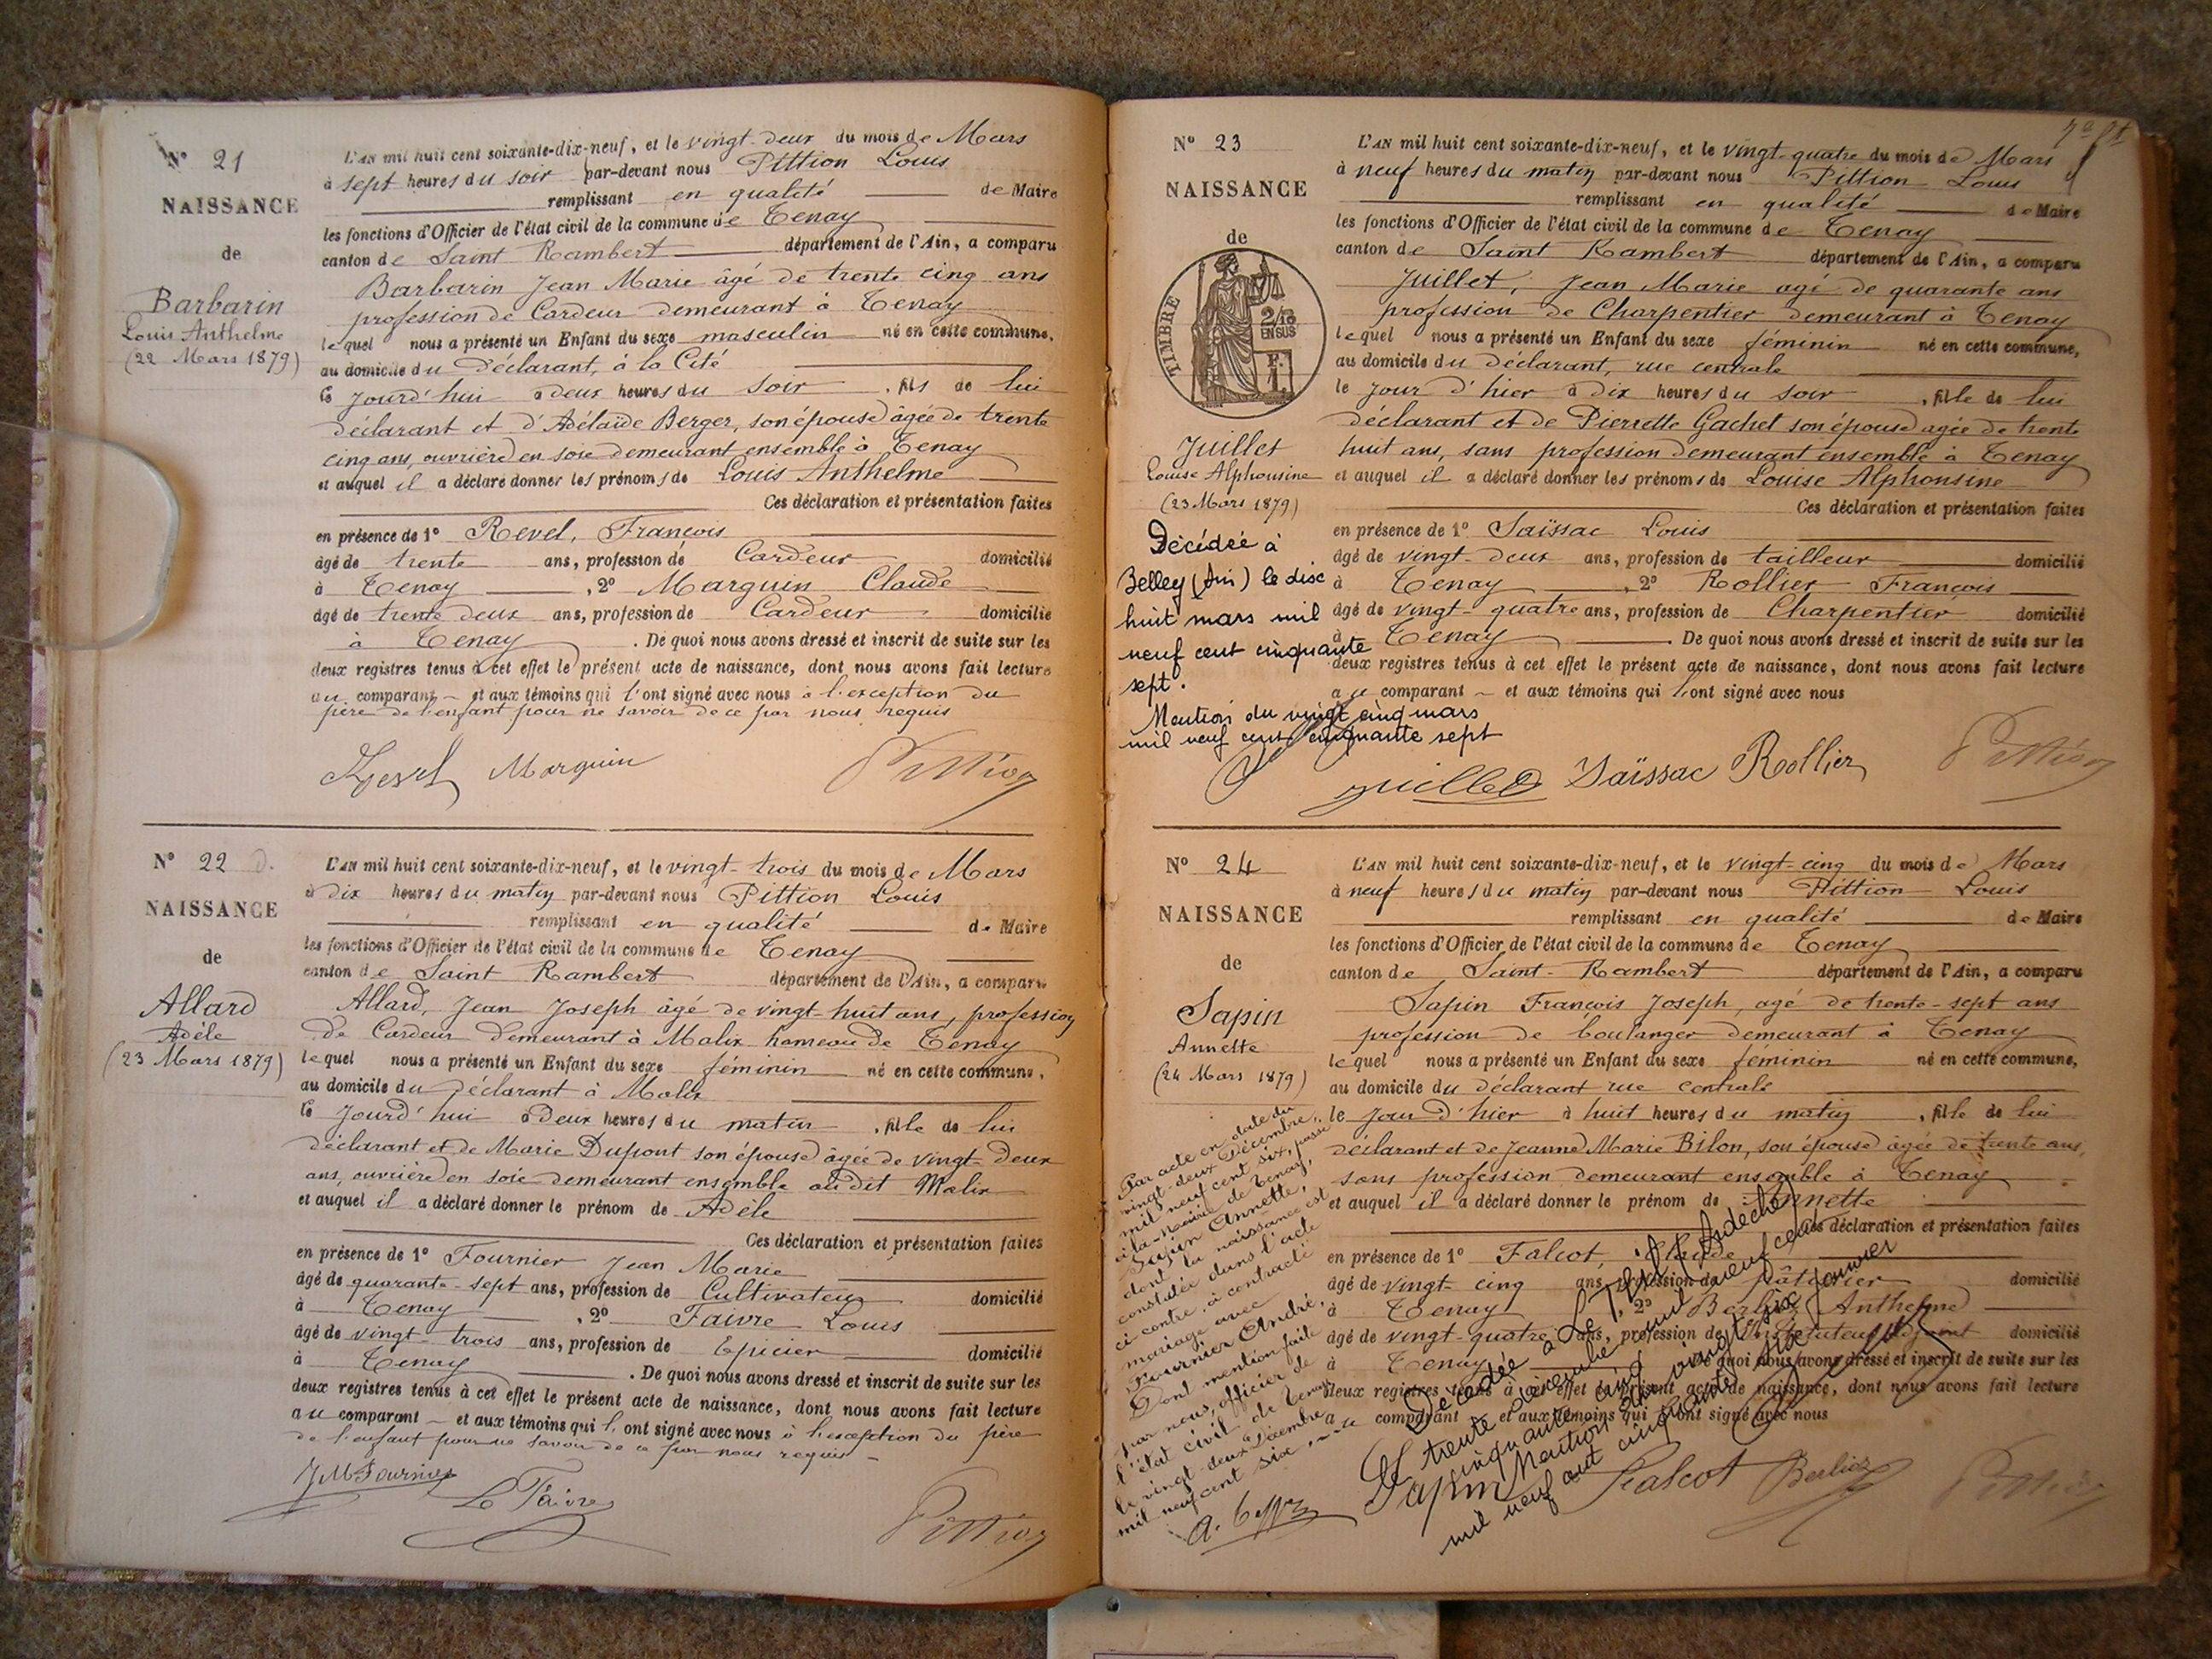 N° 21
NAISSANCE
de
Barbarin
Louis Anthelme
(22 Mars 1879)
L'AN mil huit cent soixante-dix-neuf, et le vingt-deux du mois de Mars
à sept heures du soir par-devant nous Pittion Louis
remplissant en qualité de Maire
les fonctions d'Officier de l'état civil de la commune de Tenay
canton de Saint Rambert département de l'Ain, a comparu
Barbarin Jean Marie âgé de trente cinq ans
profession de Cardeur demeurant à Tenay
lequel nous a présenté un Enfant du sexe masculin né en cette commune,
au domicile du déclarant, à la Cité
le jourd'hui à deux heures du soir, fils de lui
déclarant et d'Adélaïde Berger, son épouse âgée de trente
cinq ans, ouvrière en soie demeurant ensemble à Tenay
et auquel il a déclaré donner les prénoms de Louis Anthelme
Ces déclaration et présentation faites
en présence de 1° Revel, François
âgé de trente ans, profession de Cardeur domicilié
à Tenay, 2° Marguin Claude
âgé de trente deux ans, profession de Cardeur domicilié
à Tenay. De quoi nous avons dressé et inscrit de suite sur les
deux registres tenus à cet effet le présent acte de naissance, dont nous avons fait lecture
au comparant et aux témoins qui l'ont signé avec nous à l'exception du
père de l'enfant pour ne savoir de ce par nous requis
Revel Marguin Pittion
N° 22
NAISSANCE
de
Allard
Adèle
(23 Mars 1879)
L'AN mil huit cent soixante-dix-neuf, et le vingt-trois du mois de Mars
à dix heures du matin par-devant nous Pittion Louis
remplissant en qualité de Maire
les fonctions d'Officier de l'état civil de la commune de Tenay
canton de Saint Rambert département de l'Ain, a comparu
Allard, Jean Joseph âgé de vingt-huit ans, profession
de Cardeur demeurant à Malix hameau de Tenay
lequel nous a présenté un Enfant du sexe féminin né en cette commune,
au domicile du déclarant à Malix
le jourd'hui à deux heures du matin, fille de lui
déclarant et de Marie Dupont son épouse âgée de vingt-deux
ans, ouvrière en soie demeurant ensemble audit Malix
et auquel il a déclaré donner le prénom de Adèle
Ces déclaration et présentation faites
en présence de 1° Fournier Jean Marie
âgé de quarante-sept ans, profession de Cultivateur domicilié
à Tenay, 2° Faivre Louis
âgé de vingt-trois ans, profession de Epicier domicilié
à Tenay. De quoi nous avons dressé et inscrit de suite sur les
deux registres tenus à cet effet le présent acte de naissance, dont nous avons fait lecture
au comparant et aux témoins qui l'ont signé avec nous à l'exception du père
de l'enfant pour ne savoir de ce par nous requis
JM Fournier
Ls Faivre
Pittion
N° 23
NAISSANCE
de
TIMBRE
2/10
EN SUS
F.
1.
Juillet
Louise Alphonsine
(23 Mars 1879)
Décédée à
Belley (Ain) le dix
huit mars mil
neuf cent cinquante
sept.
Mention du vingt cinq mars
mil neuf cent cinquante sept
L'AN mil huit cent soixante-dix-neuf, et le vingt-quatre du mois de Mars
à neuf heures du matin par-devant nous Pittion Louis
remplissant en qualité de Maire
les fonctions d'Officier de l'état civil de la commune de Tenay
canton de Saint Rambert département de l'Ain, a comparu
Juillet, Jean Marie agé de quarante ans
profession de Charpentier demeurant à Tenay
lequel nous a présenté un Enfant du sexe féminin né en cette commune,
au domicile du déclarant, rue centrale
le jour d'hier à dix heures du soir, fille de lui
déclarant et de Pierrette Gachet son épouse agée de trente
huit ans, sans profession demeurant ensemble à Tenay
et auquel il a déclaré donner les prénoms de Louise Alphonsine
Ces déclaration et présentation faites
en présence de 1° Saïssac Louis
âgé de vingt-deux ans, profession de tailleur domicilié
à Tenay, 2° Rollier François
âgé de vingt-quatre ans, profession de Charpentier domicilié
à Tenay. De quoi nous avons dressé et inscrit de suite sur les
deux registres tenus à cet effet le présent acte de naissance, dont nous avons fait lecture
au comparant et aux témoins qui l'ont signé avec nous
Juillet Saïssac Rollier Pittion
N° 24
NAISSANCE
de
Sapin
Annette
(24 Mars 1879)
Par acte en date du
vingt-deux Décembre,
mil neuf cent six, passé
à la mairie de Tenay,
Sapin Annette,
dont la naissance est
constatée dans l'acte
ci contre, à contracté
mariage avec
Fournier André.
Dont mention faite
par nous, officier de
l'état civil de Tenay
le vingt-deux Décembre
mil neuf cent six
L'AN mil huit cent soixante-dix-neuf, et le vingt-cinq du mois de Mars
à neuf heures du matin par-devant nous Pittion Louis
remplissant en qualité de Maire
les fonctions d'Officier de l'état civil de la commune de Tenay
canton de Saint-Rambert département de l'Ain, a comparu
Sapin François Joseph, agé de trente-sept ans
profession de boulanger demeurant à Tenay
lequel nous a présenté un Enfant du sexe féminin né en cette commune,
au domicile du déclarant rue centrale
le jour d'hier à huit heures du matin, fille de lui
déclarant et de Jeanne Marie Bilon, son épouse âgée de trente ans,
sans profession demeurant ensemble à Tenay
et auquel il a déclaré donner le prénom de Annette
Ces déclaration et présentation faites
en présence de 1° Falcot, Claude
âgé de vingt-cinq ans, profession de pâtissier domicilié
à Tenay, 2° Berlioz Anthelme
âgé de vingt-quatre ans, profession de Instituteur adjoint domicilié
à Tenay. De quoi nous avons dressé et inscrit de suite sur les
deux registres tenus à cet effet le présent acte de naissance, dont nous avons fait lecture
au comparant et aux témoins qui l'ont signé avec nous
Sapin Falcot Berlioz Pittion
Décédée à Le Teil (Ardèche)
le trente décembre mil neuf cent
cinquante cinq
Mention du vingt six janvier
mil neuf cent cinquante six